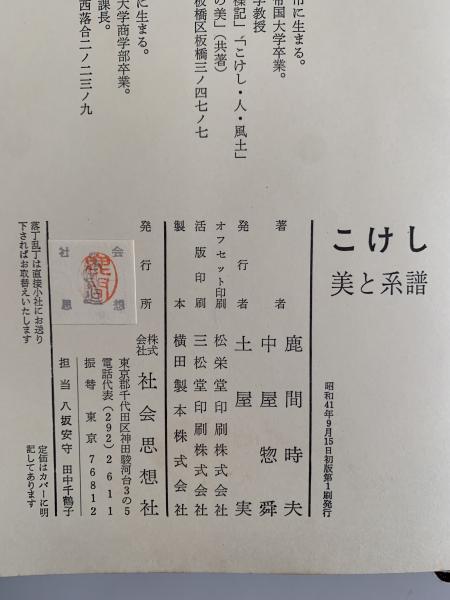 市に生まる。
帝国大学卒業。
学教授
様記」「こけし・人・風土」
の美」（共著）
板橋区板橋三ノ四七ノ七
に生まる。
大学商学部卒業。
課長。
西落合二ノ二三ノ九
こけし
美と系譜
昭和41年9月15日初版第1刷発行
著者 鹿間時夫
中屋惣舜
発行者 土屋実
オフセット印刷 松栄堂印刷株式会社
活版印刷 三松堂印刷株式会社
製本 横田製本株式会社
発行所 株式会社 社会思想社
東京都千代田区神田駿河台3の5
電話代表(292)2611
振替東京76812
担当 八坂安守 田中千鶴子
社会
思想
鹿間
落丁乱丁は直接小社にお送り
下さればお取替えいたします
定価はカバーに明
記してあります